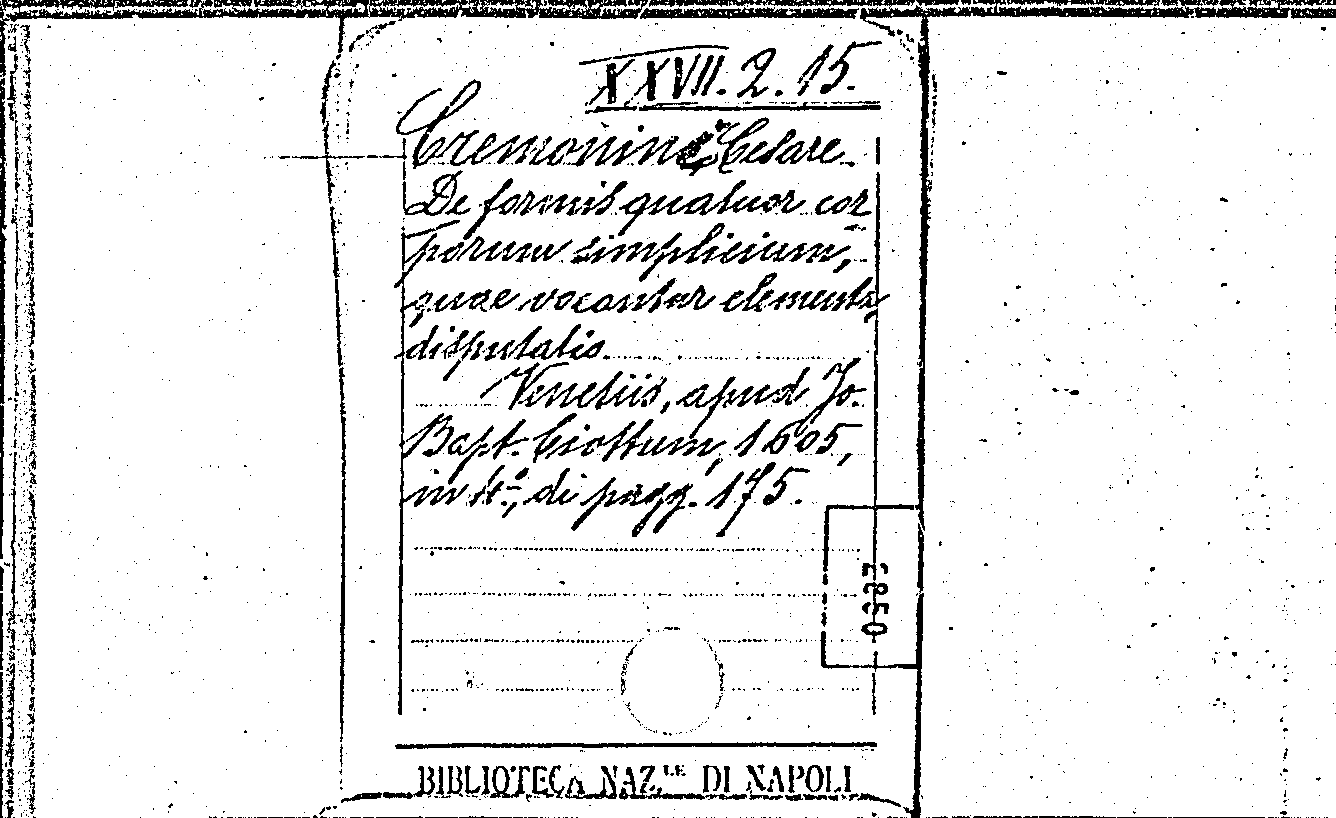 XXVII. 2. 15.
Cremonini Cesare.
De formis quatuor cor
porum simplicium,
quae vocantur elementa,
disputatio.
Venetiis, apud Jo.
Bapt. Ciottum, 1605,
in 4º, di pagg. 175.
BIBLIOTECA NAZ.LE DI NAPOLI